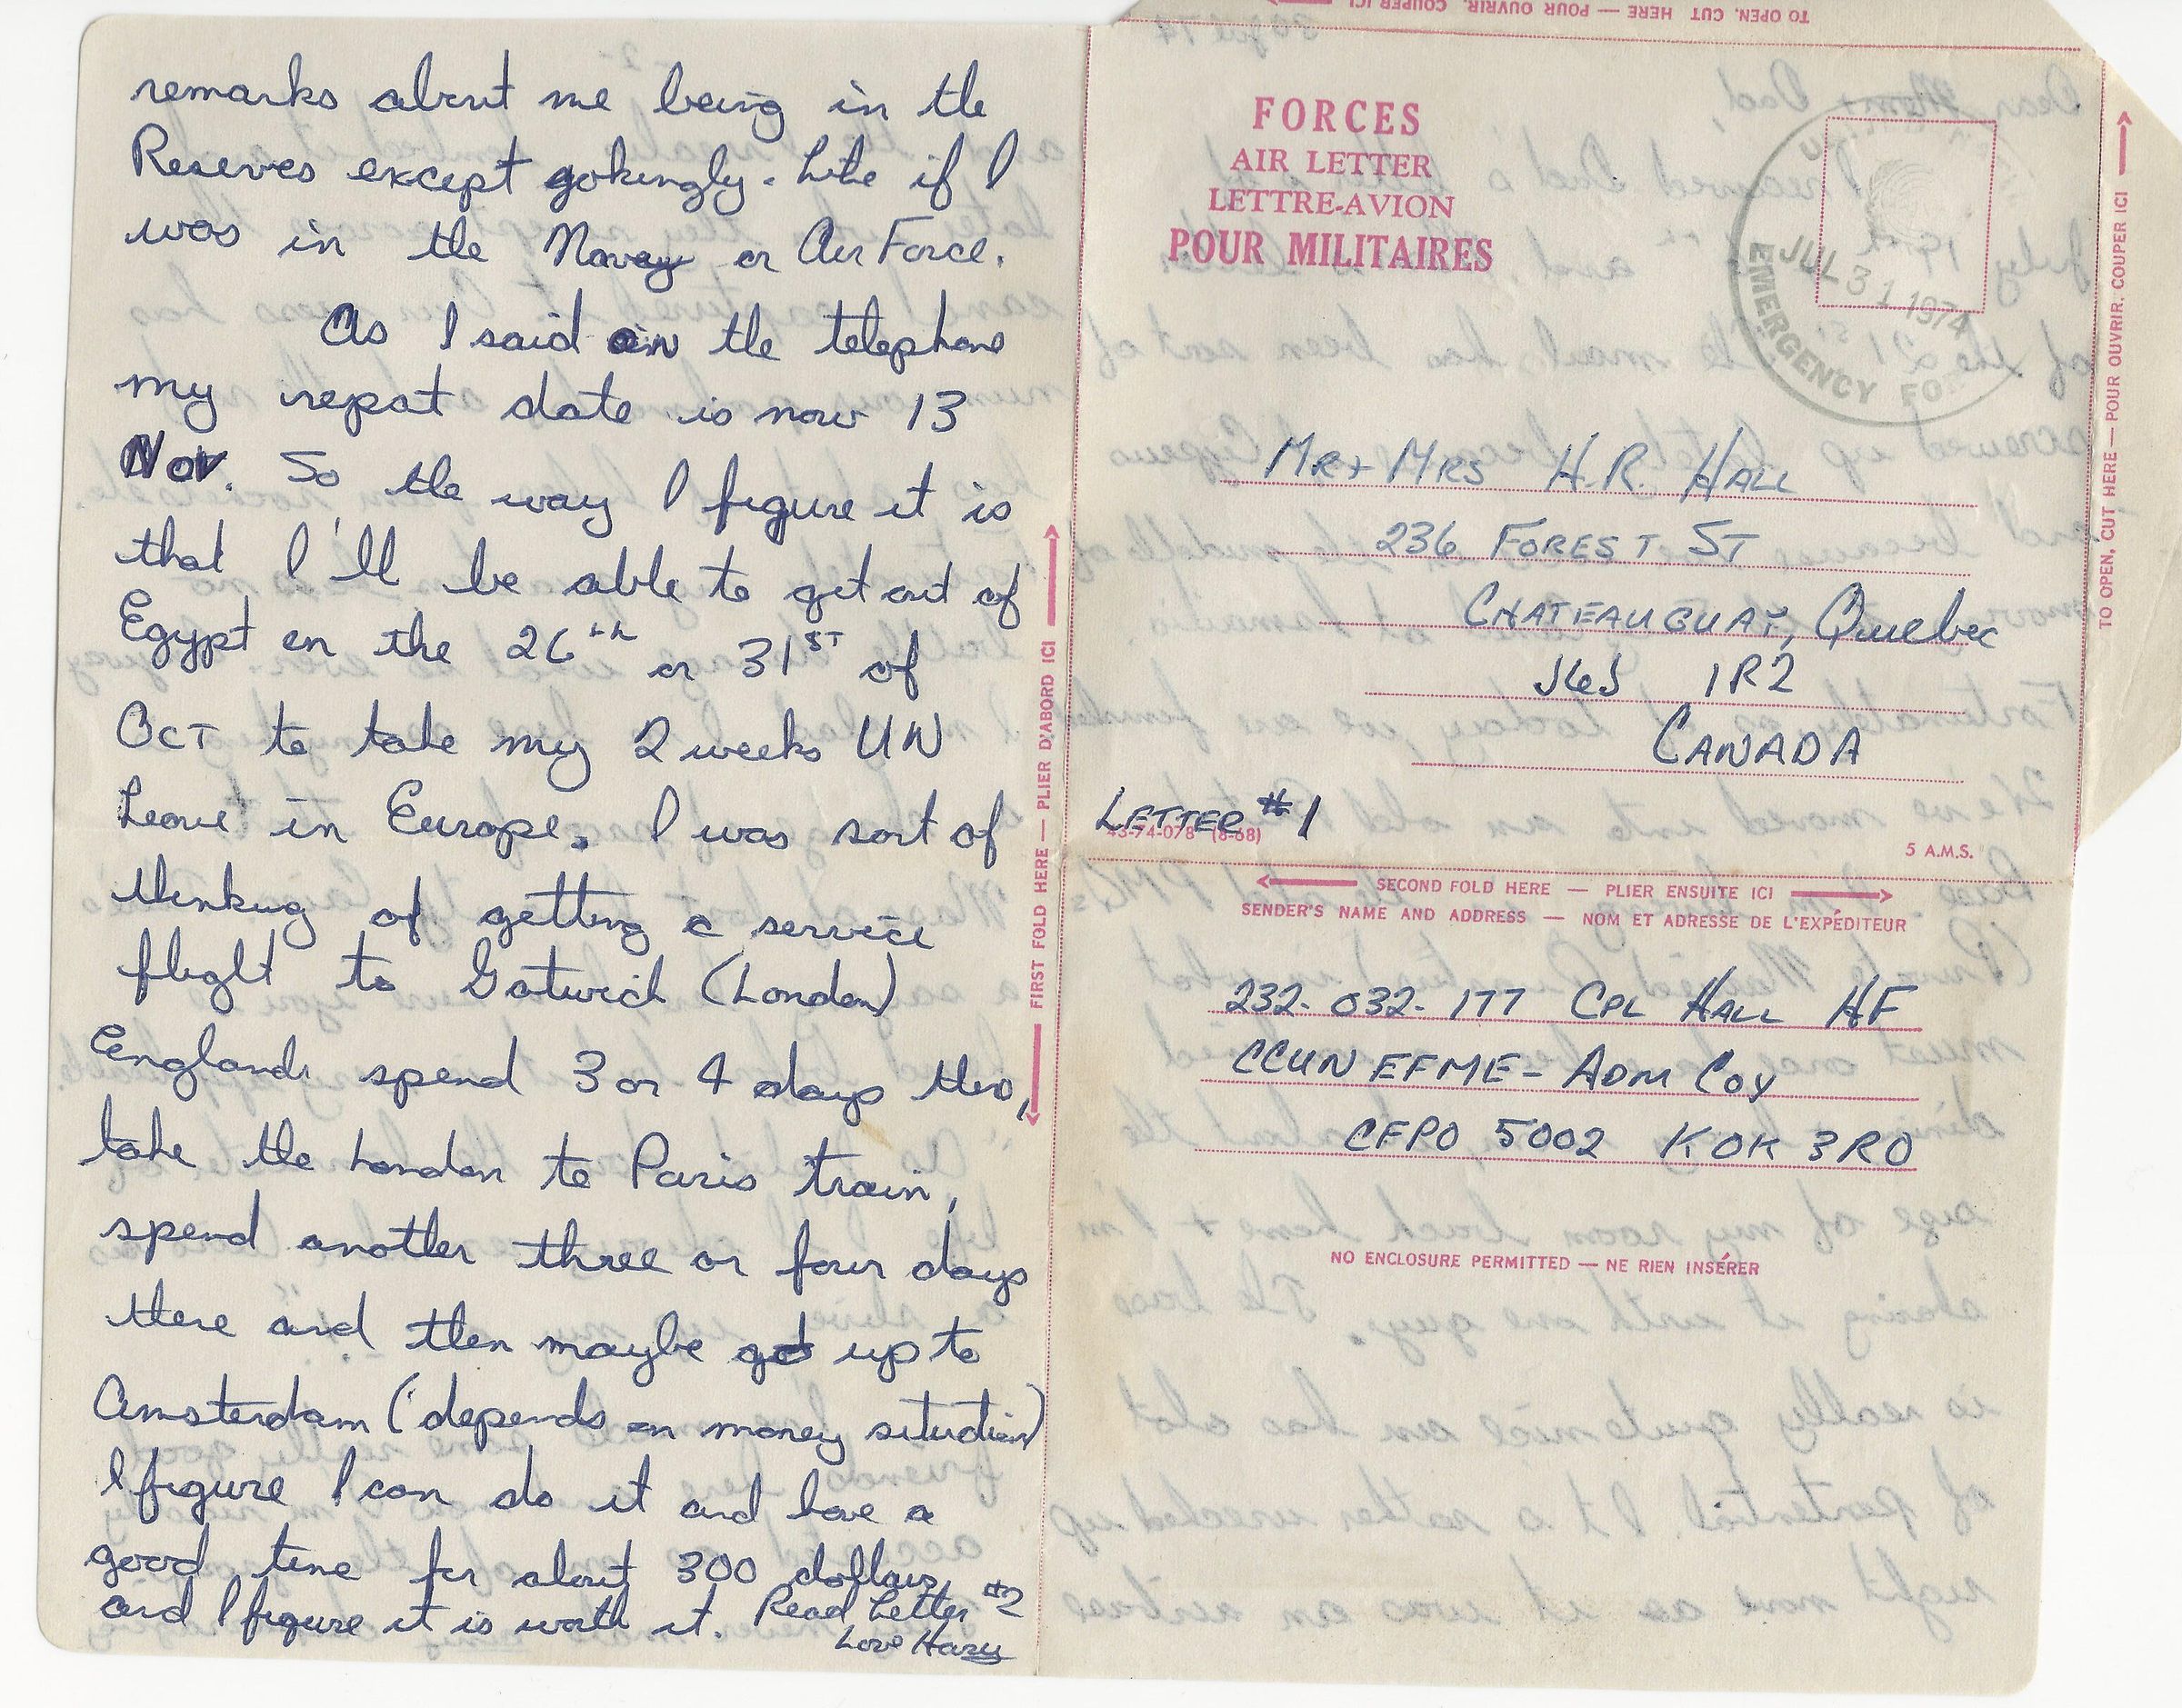 remarks about me being in the
Reserves except gokingly. Like if I
was in the Navay or Air Force.
As I said in the telephone
my repat date is now 13
Nov. So the way I figure it is
that I'll be able to get out of
Egypt on the 26th or 31ST of
OCT to take my 2 weeks UN
Leave in Europe. I was sort of
thinking of getting a service
flight to Gatwick (London)
England, spend 3 or 4 days there,
take the London to Paris train,
spend another three or four days
there and then maybe go up to
Amsterdam (depends on money situation)
I figure I can do it and have a
good time for about 300 dollars,
and I figure it is worth it. Read Letter #2
Love Harry
FIRST FOLD HERE — PLIER D'ABORD ICI
TO OPEN, CUT HERE — POUR OUVRIR, COUPER ICI
30 Jul 74
FORCES
AIR LETTER
LETTRE-AVION
POUR MILITAIRES
JUL 31 1974
EMERGENCY FO
MR + MRS H.R. HALL
236 FOREST ST
CHATEAUGUAY, Quebec
J6J 1R2
CANADA
LETTER #1
43-74-078 (8-68)
5 A.M.S.
TO OPEN, CUT HERE — POUR OUVRIR, COUPER ICI
SECOND FOLD HERE — PLIER ENSUITE ICI
SENDER'S NAME AND ADDRESS — NOM ET ADRESSE DE L'EXPÉDITEUR
232-032-177 CPL HALL HF
CCUNEFME - ADM COY
CFPO 5002 K0K 3R0
NO ENCLOSURE PERMITTED — NE RIEN INSÉRER